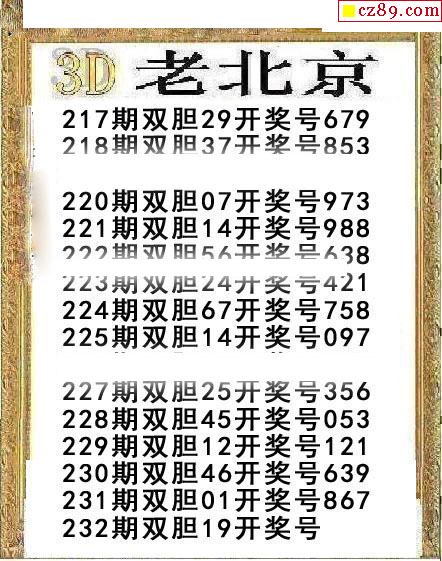 cz89.com
3D 老北京
217期双胆29开奖号679
218期双胆37开奖号853
220期双胆07开奖号973
221期双胆14开奖号988
222期双胆56开奖号638
223期双胆24开奖号421
224期双胆67开奖号758
225期双胆14开奖号097
227期双胆25开奖号356
228期双胆45开奖号053
229期双胆12开奖号121
230期双胆46开奖号639
231期双胆01开奖号867
232期双胆19开奖号